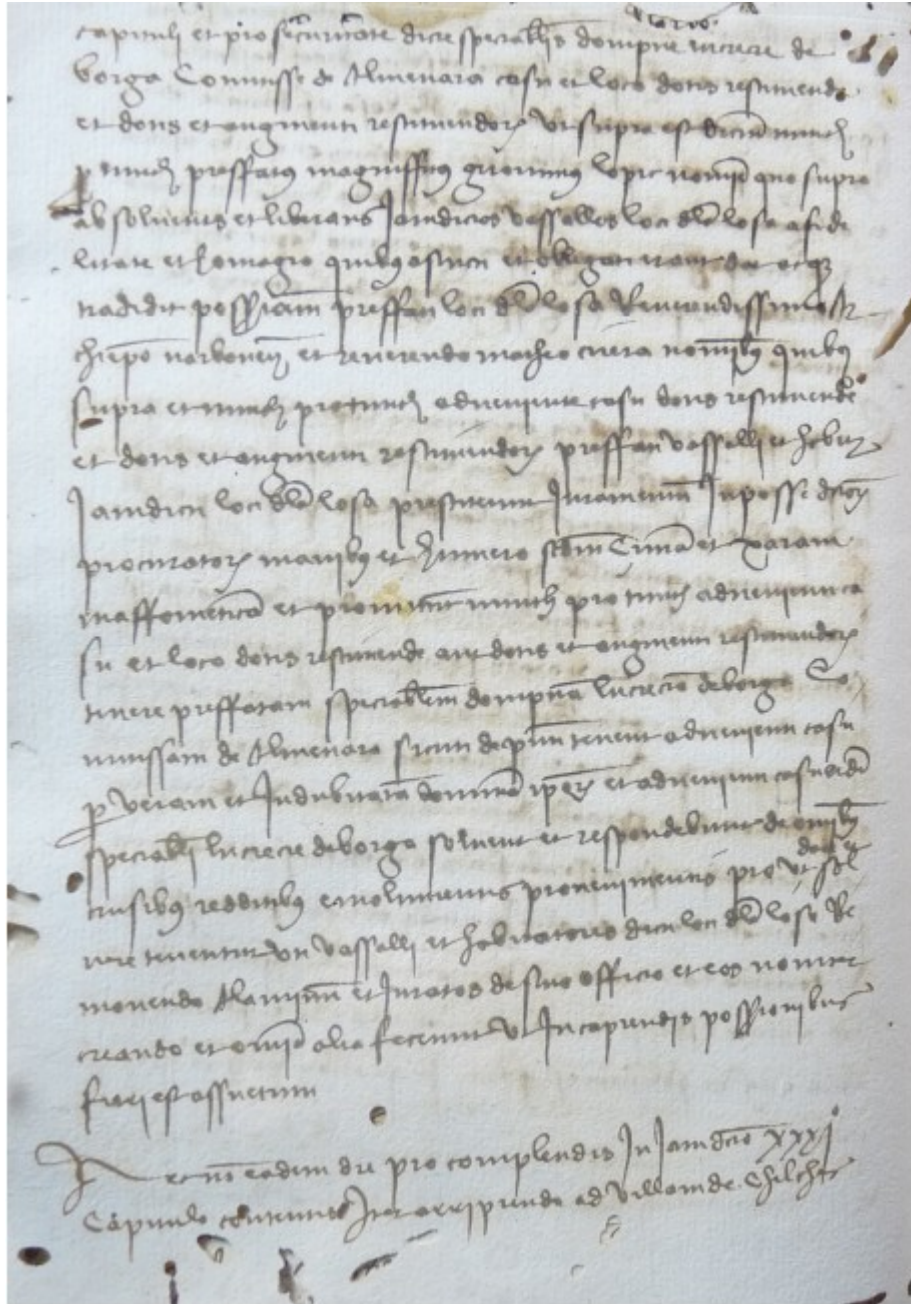 capituli et pro securitate dicte spectabilis dompne lucrecie de
borga Comitisse de Almenara casu et loco dotis restituende
et dotis et augmenti restituendorum ut supra est dictum nunch
pro tunch preffatus magnifficus geronimus lopic nomine quo supra
absolvens et liberans Jamdictos vassallos loci dela losa a fide
litate et homagio quibus astricti et obligati erant dat atque
tradidit possessionem preffati loci dela losa Reverendissimo Ar
chiepo narbonensi et reverendo matheo cuera nominibus quibus
supra et nunch pro tunch adveniente casu dotis restituende
et dotis et augmenti restituendorum preffati vassalli et habitatores
Jamdicti loci dela losa prestiterunt Juramentum In posse dictorum
procuratorum manibus et secundum Cunam et xaram
maffometicam et promittunt nunch pro tunch advenienti ca
su et loco dotis restituende aut dotis et augmenti restituendorum
tenere preffatam spectabilem dompnam lucreciam de borga Co
mitissam de Almenara sicuti de presenti tenent advenienti casu
pro veram et Indubitatam dominam ipsorum et advenienti casu eidem
spectabili lucrecie de borga solvent et respondebunt de omnibus
censibus redditibus emolumentis provenimentis pro ut dare et sol
vere tenentur uti vassalli et habitatores dicti loci dela losa Re
movendo Alaminum et Juratos de suo officio et eos noviter
creando et omnia alia fecerunt ut In capiendis possessionibus
fieri est assuetum
et in eadem die pro complendis In Jamdicto xxxj
Capitulo contentis Iter arripiendo ad villam de Chilches